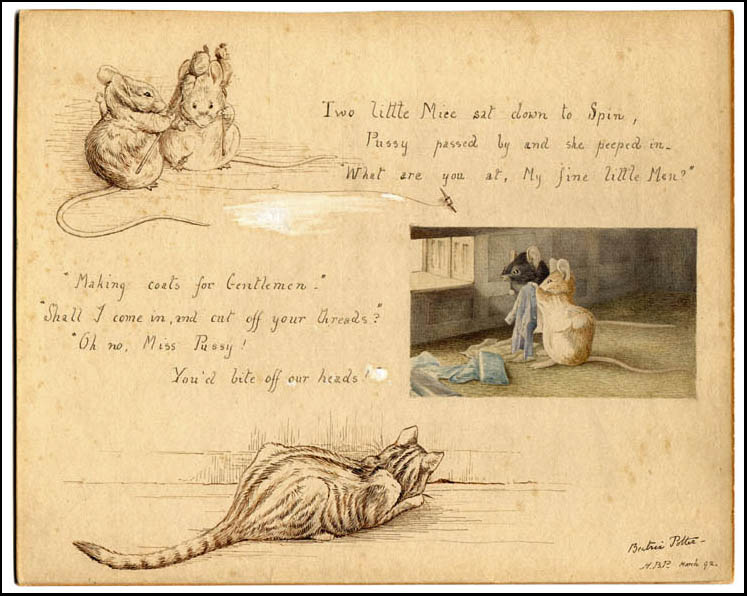 Two little Mice sat down to Spin,
Pussy passed by and she peeped in.
"What are you at, My fine little Men?"
"Making coats for Gentlemen."
"Shall I come in, and cut off your threads?"
"Oh no, Miss Pussy!
You'd bite off our heads!"
Beatrix Potter -
H.B.P. March 92.